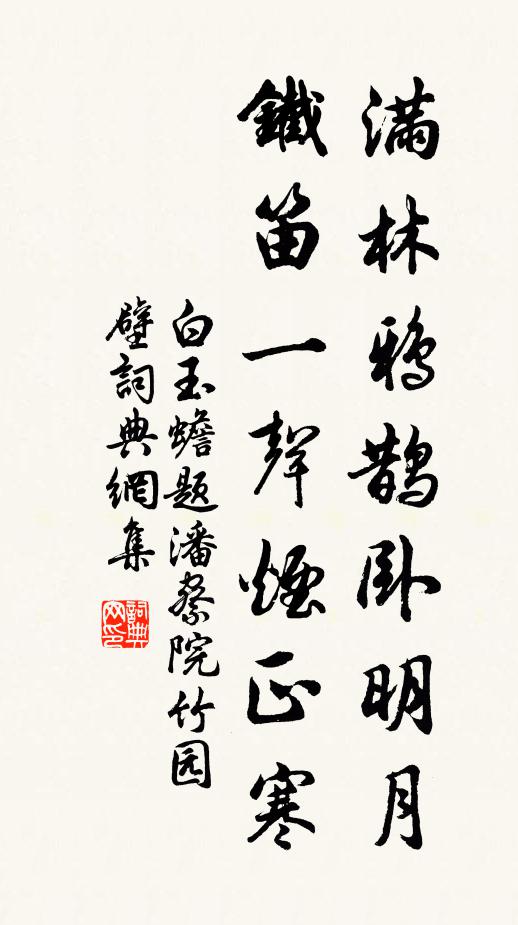 滿林鴉鵲卧明月
鐵笛一聲煙正寒
白玉蟾题潘察院竹园
壁詞典網集
詞典网印